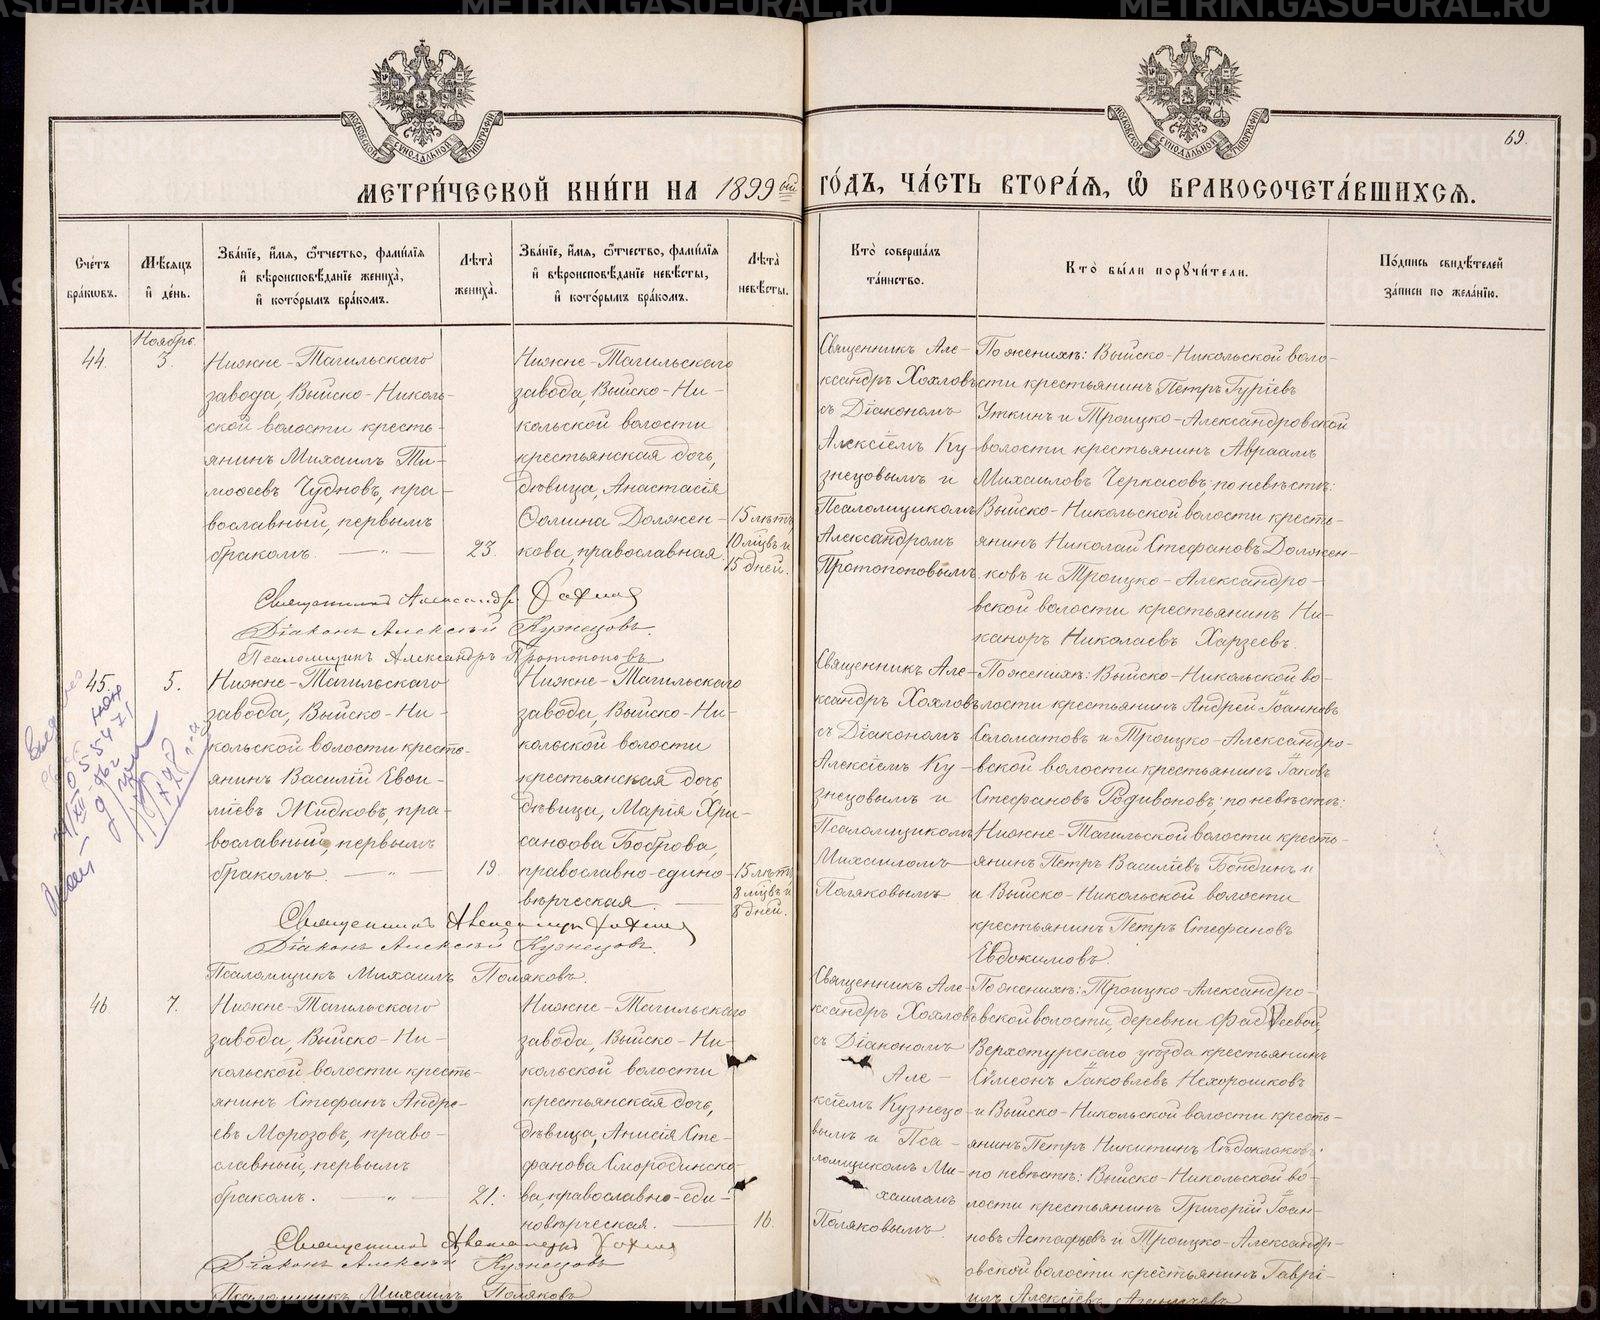 69.
МЕТРИ́ЧЕСКОЙ КНИ́ГИ НА 1899 ый ГО́ДЪ, ЧА́СТЬ ВТОРА́Я, Ѡ БРАКОСОЧЕТА́ВШИХСЯ.
Сче́тъ бра́кωвъ.
Мѣ́сяцъ и́ де́нь.
Зва́нїе, и́мя, ѻ́тчество, фами́лїя
и́ вѣроисповѣ́данїе жениха̀,
и́ кото́рымъ бра́комъ.
Лѣ́та̀ жениха̀.
Зва́нїе, и́мя, ѻ́тчество, фами́лїя
и́ вѣроисповѣ́данїе невѣ́сты,
и́ кото́рымъ бра́комъ.
Лѣ́та̀ невѣ́сты.
Кто̀ соверша́лъ та́инство.
Кто̀ бы́ли поручи́тели.
По́дпись свидѣ́телей за́писи по жела́нїю.
Ноябрь
44.
3.
Нижне-Тагильскаго
завода, Выйско-Николь-
ской волости кресть-
янинъ Михаилъ Ти-
моѳеевъ Чудновъ, пра-
вославный, первымъ
бракомъ
23.
Нижне-Тагильскаго
завода, Выйско-Ни-
кольской волости
крестьянская дочь,
дѣвица, Анастасія
Ѳомина Должен-
кова, православная.
15 лѣтъ
10 мцвъ и
15 дней.
Священникъ Але-
ксандръ Хохловъ
съ Діакономъ
Алексіемъ Ку-
знецовымъ и
Псаломщикомъ
Александромъ
Протопоповымъ
По женихѣ: Выйско-Никольской воло-
сти крестьянинъ Петръ Гуріевъ
Уткинъ и Троицко-Александровской
волости крестьянинъ Авраамъ
Михаиловъ Черкасовъ; по невѣстѣ:
Выйско-Никольской волости кресть-
янинъ Николай Стефановъ Должен-
ковъ и Троицко-Александро-
вской волости крестьянинъ Ни-
каноръ Николаевъ Харзеевъ.
Священникъ Александръ Хохловъ
Діаконъ Алексій Кузнецовъ.
Псаломщикъ Александръ Протопоповъ
45.
5.
Нижне-Тагильскаго
завода, Выйско-Ни-
кольской волости кресть-
янинъ Василій Евѳи-
міевъ Жидковъ, пра-
вославный, первымъ
бракомъ.
19
Нижне-Тагильскаго
завода, Выйско-Ни-
кольской волости
крестьянская дочь,
дѣвица, Марія Хри-
санѳова Боброва,
православно-едино-
вѣрческая.
15 лѣтъ
8 мцвъ и
8 дней.
Священникъ Але-
ксандръ Хохловъ
съ Діакономъ
Алексіемъ Ку-
знецовымъ и
Псаломщикомъ
Михаиломъ
Поляковымъ
По женихѣ: Выйско-Никольской во-
лости крестьянинъ Андрей Іоанновъ
Соломатовъ и Троицко-Александро-
вской волости крестьянинъ Іаковъ
Стефановъ Родивоновъ; по невѣстѣ:
Нижне-Тагильской волости кресть-
янинъ Петръ Василіевъ Бондинъ и
и Выйско-Никольской волости
крестьянинъ Петръ Стефановъ
Евдокимовъ.
Священникъ Александръ Хохловъ
Діаконъ Алексій Кузнецовъ.
Псаломщикъ Михаилъ Поляковъ.
46
7.
Нижне-Тагильскаго
завода, Выйско-Ни-
кольской волости кресть-
янинъ Стефанъ Андре-
евъ Морозовъ, право-
славный, первымъ
бракомъ.
21.
Нижне-Тагильскаго
завода, Выйско-Ни-
кольской волости
крестьянская дочь,
дѣвица, Анисія Сте-
фанова Смородинско-
ва, православно-еди-
новѣрческая.
16.
Священникъ Але-
ксандръ Хохловъ
съ Діакономъ
Але-
ксіемъ Кузнецо-
вымъ и Пса-
ломщикомъ Ми-
хаиломъ
Поляковымъ.
По женихѣ: Троицко-Александро-
вской волости, деревни Фадѣевой,
Верхотурскаго уѣзда крестьянинъ
Сѵмеонъ Іаковлевъ Нехорошковъ
и Выйско-Никольской волости кресть-
янинъ Петръ Никитинъ
по невѣстѣ: Выйско-Никольской во-
лости крестьянинъ Григорій Іоан-
новъ Астафьевъ и Троицко-Александр-
овской волости крестьянинъ Гаврі-
илъ Алексіевъ
Священникъ Александръ Хохловъ
Діаконъ Алексій Кузнецовъ
Псаломщикъ Михаилъ Поляковъ
METRIKI.GASU-URAL.RU